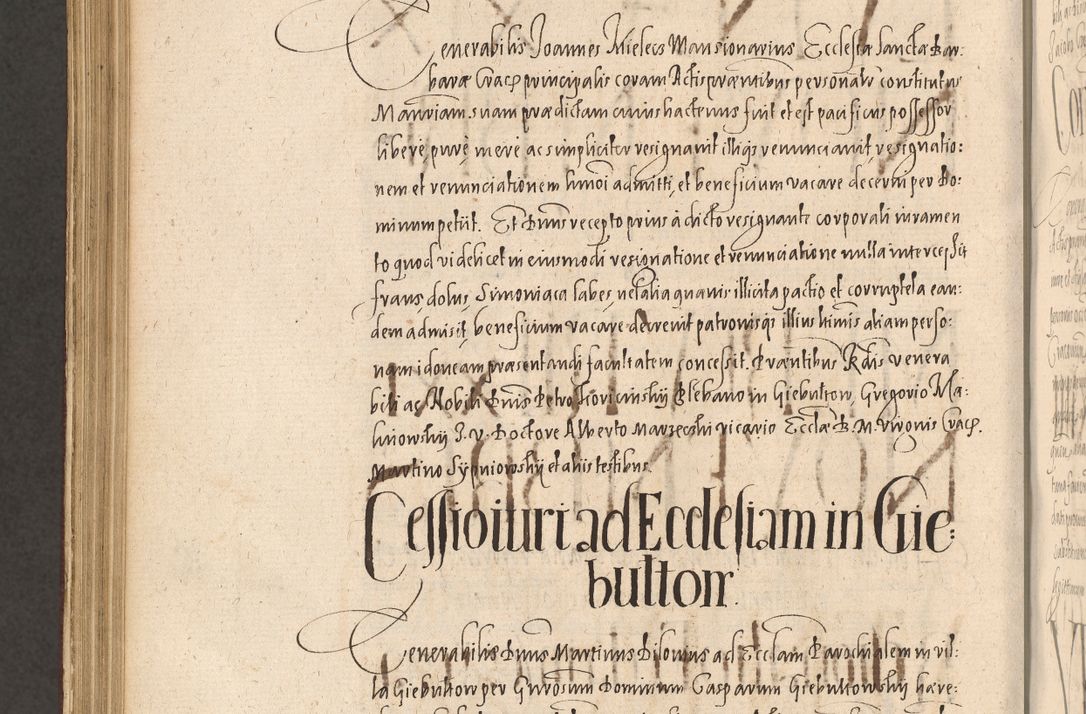 Venerabilis Joannes Mielecs Mansionarius Ecclesiæ Sanctæ Bar:
baræ Crac principalis coram Actis præntibus personalr constitutus
Mansriam suam præ dictam cuius hactenus fuit et est pacificus possessor
liberè, purè, merè ac simpliciter resignavit illiqs renunciavit, resignatio:
nem et renunciationem hmoi admitti, et beneficium vacare decerni per Do:
minum petiit. Et Dnus recepto prius à dicto resignante corporali iuramen
to quod videlicet in eiusmodi resignatione et renunciatione nulla intercessit
fraus dolus, Simoniaca labes, vel alia quævis illicita pactio et corruptela ean:
dem admisit, beneficium vacare decrevit patronisqs illius hmis aliam perso:
nam idoneam præsentandi facultatem concessit. Præntibus Rdis venera
bili ac Nobili Dnis Petro Hovicinskij Plebano in Giebulton, Gregorio Ma:
linowskij J. V. Doctore Alberto Marzecski vicario Ecclæ B. M. Virginis Crac.
Martino Sypniowskij et aliis testibus.
Cessio iuri ad Ecclesiam in Gie:
bulton.
Venerabilis Dnus Martinus Bilowius ad Ecclam Parochialem in vil:
la Giebulton per Gnrosum Dominum Casparum Giebultowskij hære: